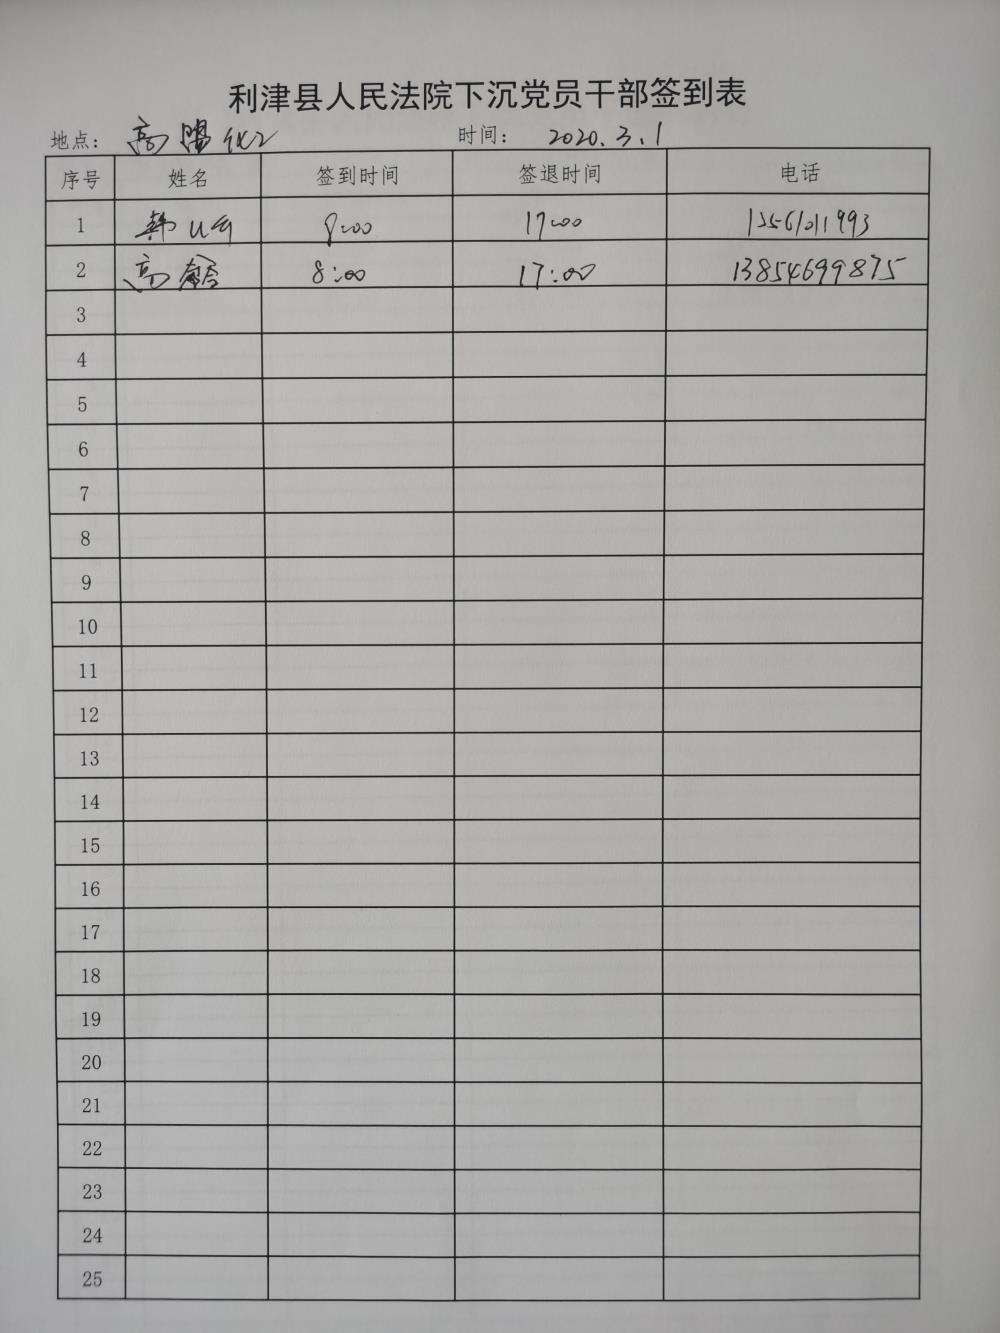 利津县人民法院下沉党员干部签到表
地点： 高盟化工 时间： 2020.3.1
序号 姓名 签到时间 签退时间 电话
1 韩 8:00 17:00 15561011993
2 高鑫 8:00 17:00 13854699875
3
4
5
6
7
8
9
10
11
12
13
14
15
16
17
18
19
20
21
22
23
24
25